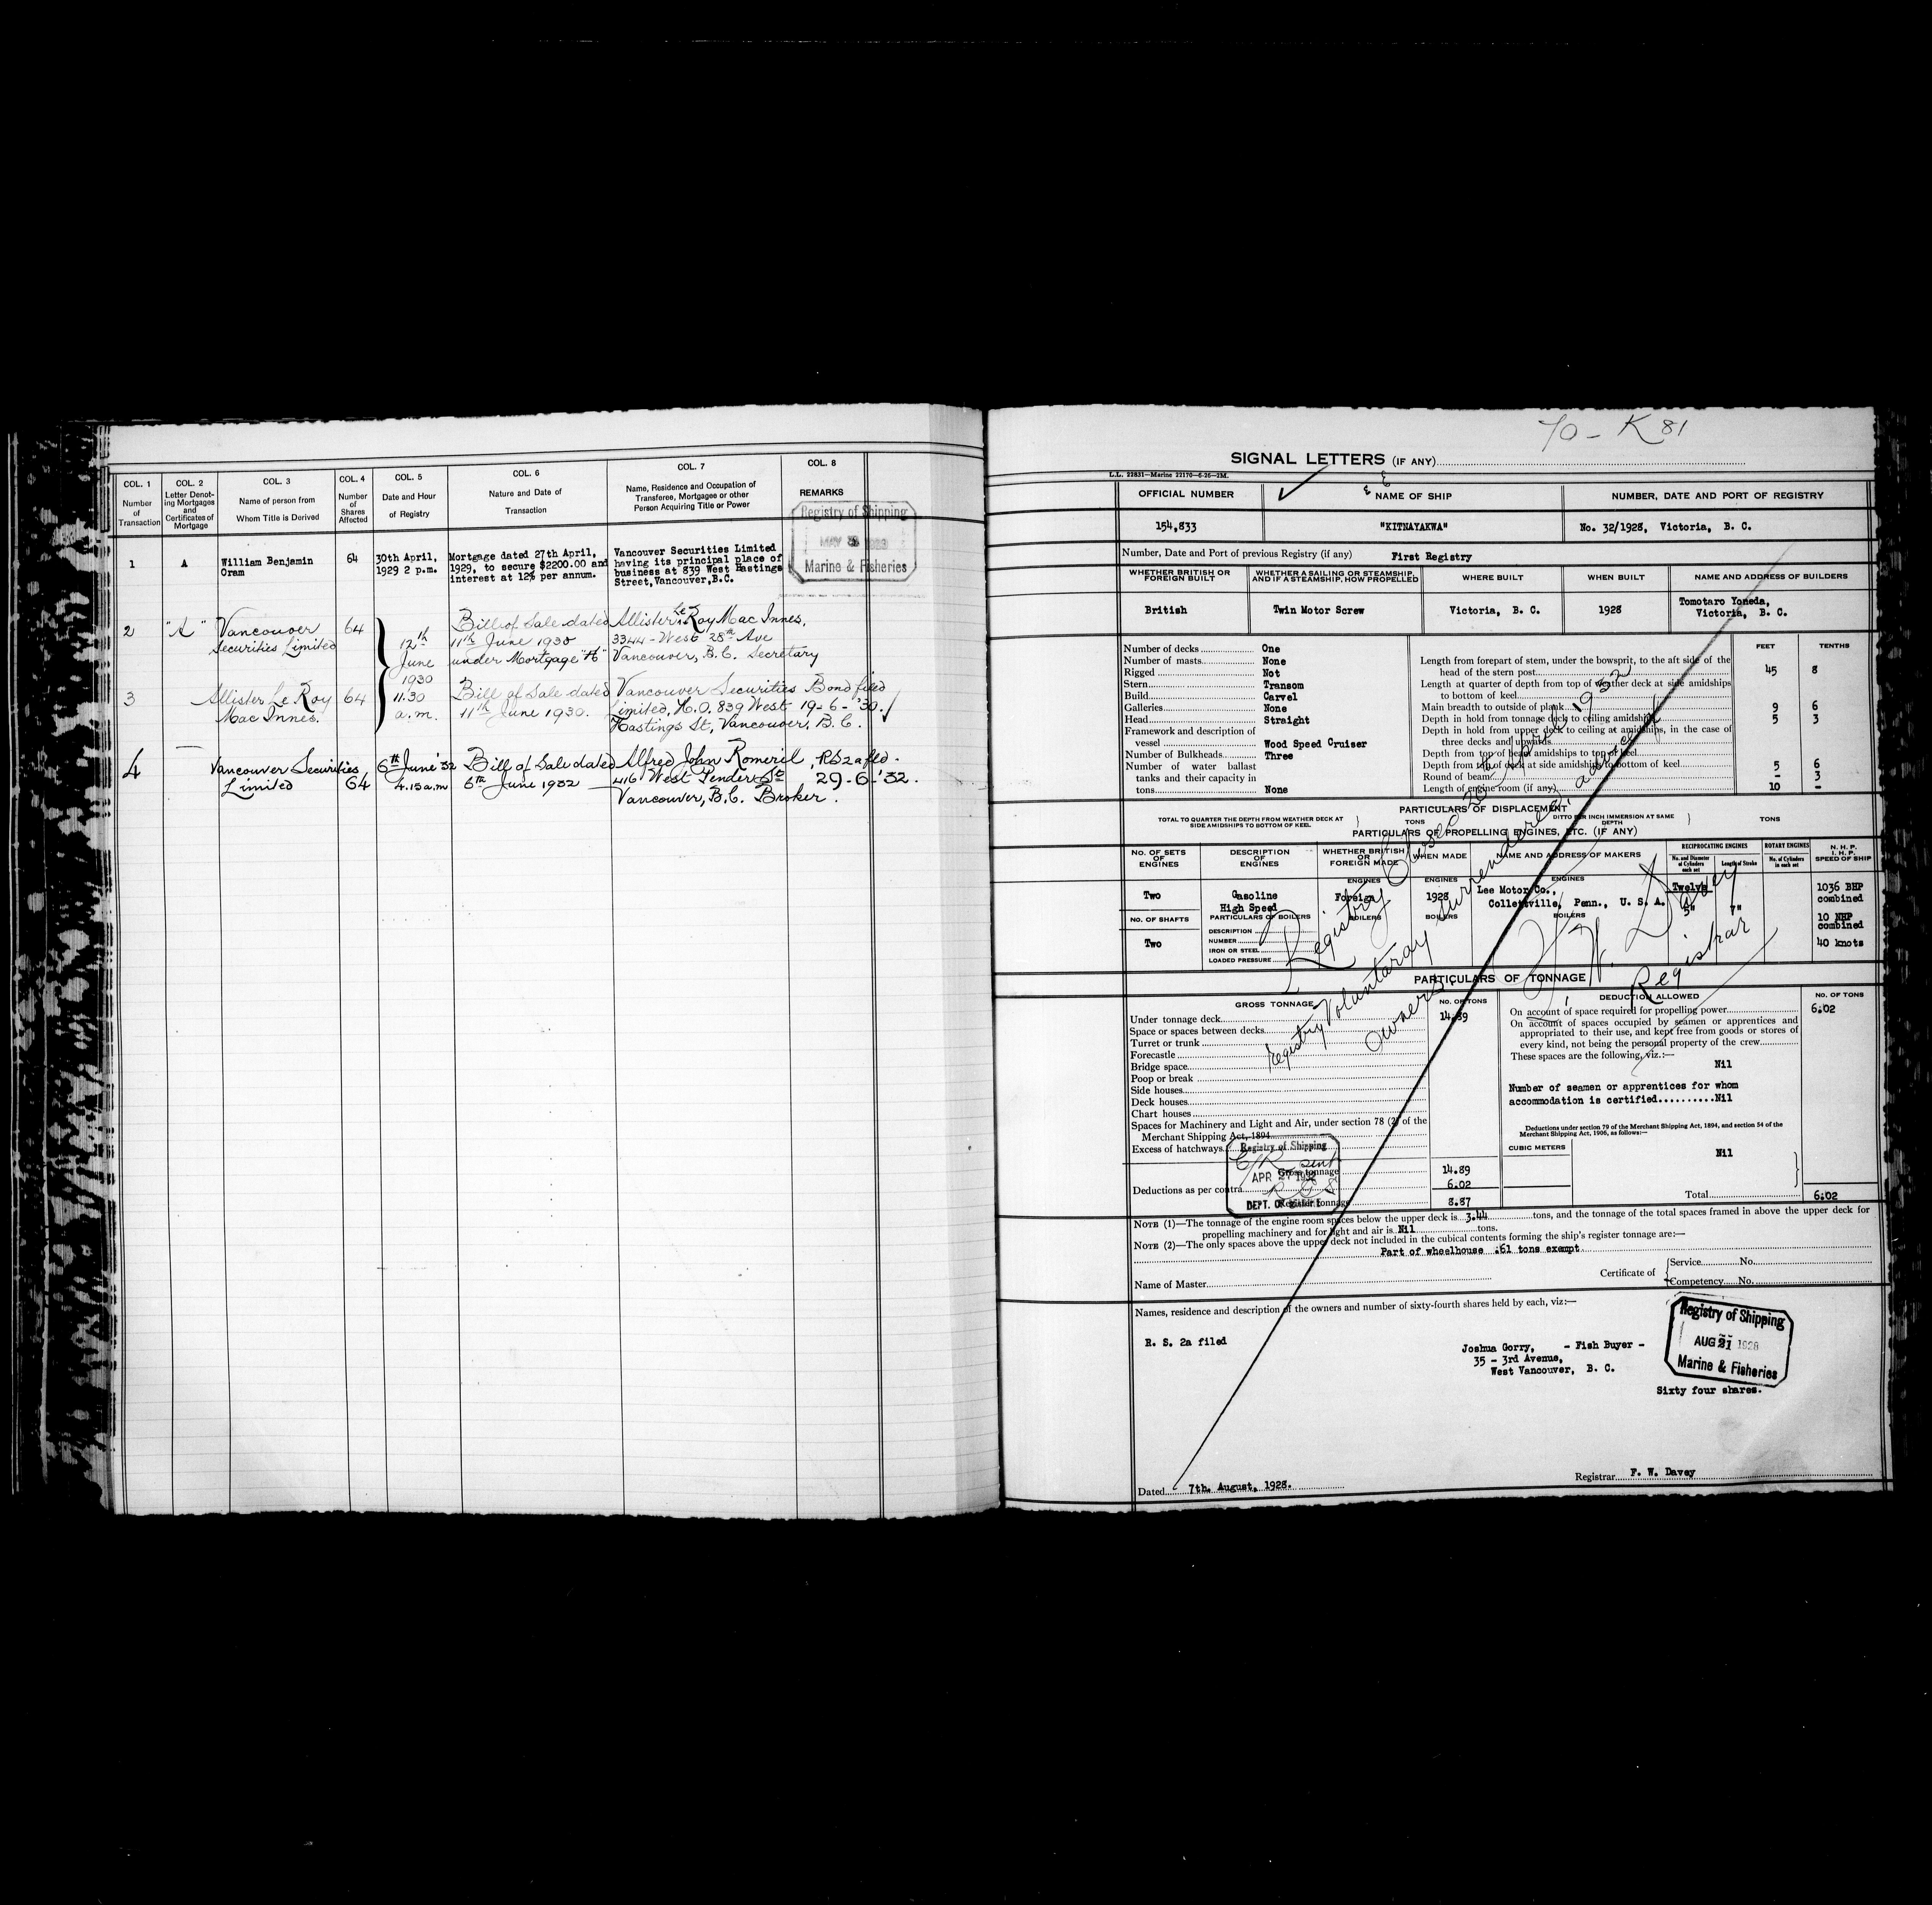 COL. 1
Number
of
Transaction
COL. 2
Letter Denot-
ing Mortgages
and
Certificates of
Mortgage
COL. 3
Name of person from
Whom Title is Derived
COL. 4
Number
of
Shares
Affected
COL. 5
Date and Hour
of Registry
COL. 6
Nature and Date of
Transaction
COL. 7
Name, Residence and Occupation of
Transferee, Mortgagee or other
Person Acquiring Title or Power
COL. 8
REMARKS
Registry of Shipping
MAY
Marine & Fisheries
1
A
William Benjamin
Oram
64
30th April,
1929 2 p.m.
Mortgage dated 27th April,
1929, to secure $2200.00 and
interest at 12% per annum.
Vancouver Securities Limited
having its principal place of
business at 839 West Hastings
Street, Vancouver, B.C.
2
"A"
Vancouver
Securities Limited
64
12th
June
1930
11.30
a.m.
Bill of Sale dated
11th June 1930
under Mortgage "A"
Allister Le Roy Mac Innes,
3344 - West 28th Ave
Vancouver, B.C. Secretary
3
Allister Le Roy
Mac Innes.
64
Bill of Sale dated
11th June 1930.
Vancouver Securities
Limited, H.O. 839 West
Hastings St, Vancouver, B.C.
Bond filed
19-6-'30.
4
Vancouver Securities
Limited
64
6th June '32
4.15 a.m
Bill of Sale dated
6th June 1932
Alfred John Romeril,
416 West Pender St
Vancouver, B.C. Broker.
RS2a fld.
29-6-'32.
70 - K 81
SIGNAL LETTERS (IF ANY)
L.L. 22831—Marine 22170—6-26—2M.
OFFICIAL NUMBER
NAME OF SHIP
NUMBER, DATE AND PORT OF REGISTRY
154,833
"KITNAYAKWA"
No. 32/1928, Victoria, B. C.
Number, Date and Port of previous Registry (if any) First Registry
WHETHER BRITISH OR
FOREIGN BUILT
WHETHER A SAILING OR STEAMSHIP,
AND IF A STEAMSHIP, HOW PROPELLED
WHERE BUILT
WHEN BUILT
NAME AND ADDRESS OF BUILDERS
British
Twin Motor Screw
Victoria, B. C.
1928
Tomotaro Yoneda,
Victoria, B. C.
Number of decks One
Number of masts None
Rigged Not
Stern Transom
Build Carvel
Galleries None
Head Straight
Framework and description of
vessel Wood Speed Cruiser
Number of Bulkheads Three
Number of water ballast
tanks and their capacity in
tons None
FEET
TENTHS
Length from forepart of stem, under the bowsprit, to the aft side of the
head of the stern post 45 8
Length at quarter of depth from top of weather deck at side amidships
to bottom of keel
Main breadth to outside of plank 9 6
Depth in hold from tonnage deck to ceiling amidships 5 3
Depth in hold from upper deck to ceiling at amidships, in the case of
three decks and upwards
Depth from top of beam amidships to top of keel
Depth from top of deck at side amidships to bottom of keel 5 6
Round of beam - 3
Length of engine room (if any) 10 -
PARTICULARS OF DISPLACEMENT
TOTAL TO QUARTER THE DEPTH FROM WEATHER DECK AT
SIDE AMIDSHIPS TO BOTTOM OF KEEL.
TONS
DITTO PER INCH IMMERSION AT SAME
DEPTH
TONS
PARTICULARS OF PROPELLING ENGINES, ETC. (IF ANY)
NO. OF SETS
OF
ENGINES
DESCRIPTION
OF
ENGINES
WHETHER BRITISH
OR
FOREIGN MADE
WHEN MADE
NAME AND ADDRESS OF MAKERS
RECIPROCATING ENGINES
No. and Diameter
of Cylinders
each set
Length of Stroke
ROTARY ENGINES
No. of Cylinders
in each set
N. H. P.
I. H. P.
SPEED OF SHIP
ENGINES
ENGINES
ENGINES
Two
Gasoline
High Speed
Foreign
1928
Lee Motor Co.,
Colletville, Penn., U. S. A.
Twelve
5"
7"
1036 BHP
combined
10 NHP
combined
40 knots
NO. OF SHAFTS
Two
PARTICULARS OF BOILERS
BOILERS
BOILERS
BOILERS
DESCRIPTION
NUMBER
IRON OR STEEL
LOADED PRESSURE
Registry Closed 26th April 1932
Registry Voluntaray surrendered, advice of
Owners.
F. W. Davey
Registrar
PARTICULARS OF TONNAGE
GROSS TONNAGE
NO. OF TONS
Under tonnage deck 14.89
Space or spaces between decks
Turret or trunk
Forecastle
Bridge space
Poop or break
Side houses
Deck houses
Chart houses
Spaces for Machinery and Light and Air, under section 78 (2) of the
Merchant Shipping Act, 1894
Excess of hatchways
Gross tonnage 14.89
Deductions as per contra 6.02
Register tonnage 8.87
Registry of Shipping
C/R sent
APR 27 1932
DEPT. OF
DEDUCTION ALLOWED
NO. OF TONS
On account of space required for propelling power 6.02
On account of spaces occupied by seamen or apprentices and
appropriated to their use, and kept free from goods or stores of
every kind, not being the personal property of the crew
These spaces are the following, viz.:—
Nil
Number of seamen or apprentices for whom
accommodation is certified..........Nil
Deductions under section 79 of the Merchant Shipping Act, 1894, and section 54 of the
Merchant Shipping Act, 1906, as follows:—
CUBIC METERS
Nil
Total 6.02
NOTE (1)—The tonnage of the engine room spaces below the upper deck is 3.44 tons, and the tonnage of the total spaces framed in above the upper deck for
propelling machinery and for light and air is Nil tons.
NOTE (2)—The only spaces above the upper deck not included in the cubical contents forming the ship's register tonnage are:—
Part of wheelhouse .61 tons exempt.
Name of Master
Certificate of
Service No.
Competency No.
Names, residence and description of the owners and number of sixty-fourth shares held by each, viz:—
R. S. 2a filed
Joshua Gorry, - Fish Buyer -
35 - 3rd Avenue,
West Vancouver, B. C.
Registry of Shipping
AUG 21 1928
Marine & Fisheries
Sixty four shares.
Dated 7th. August, 1928.
Registrar F. W. Davey